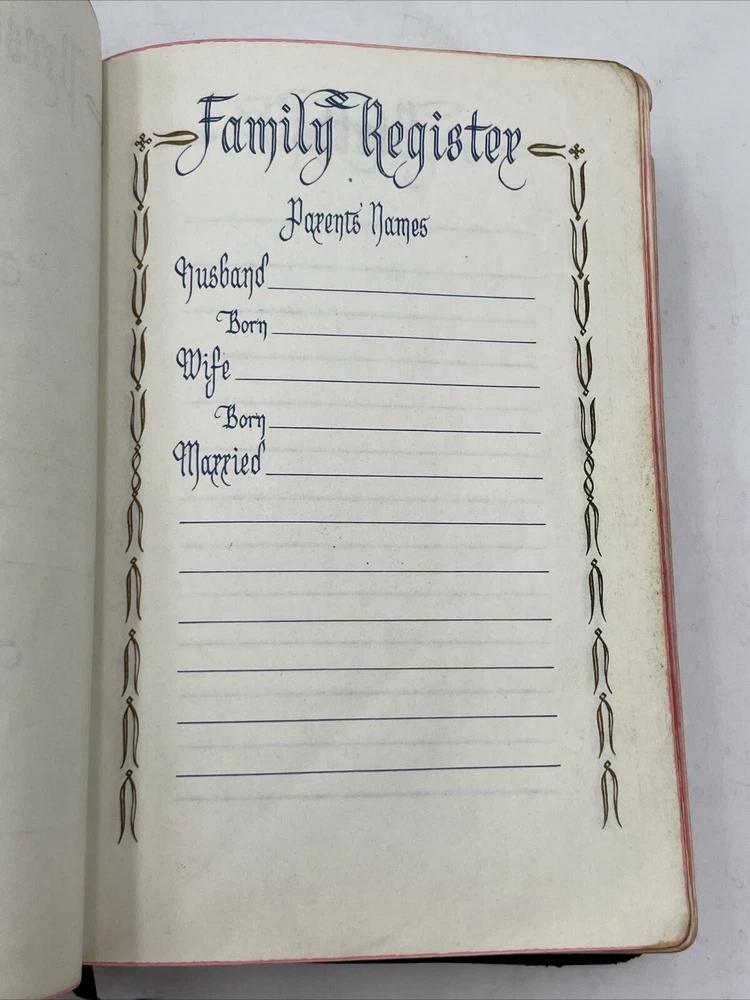 Family Register
Parents' Names
Husband
Born
Wife
Born
Married